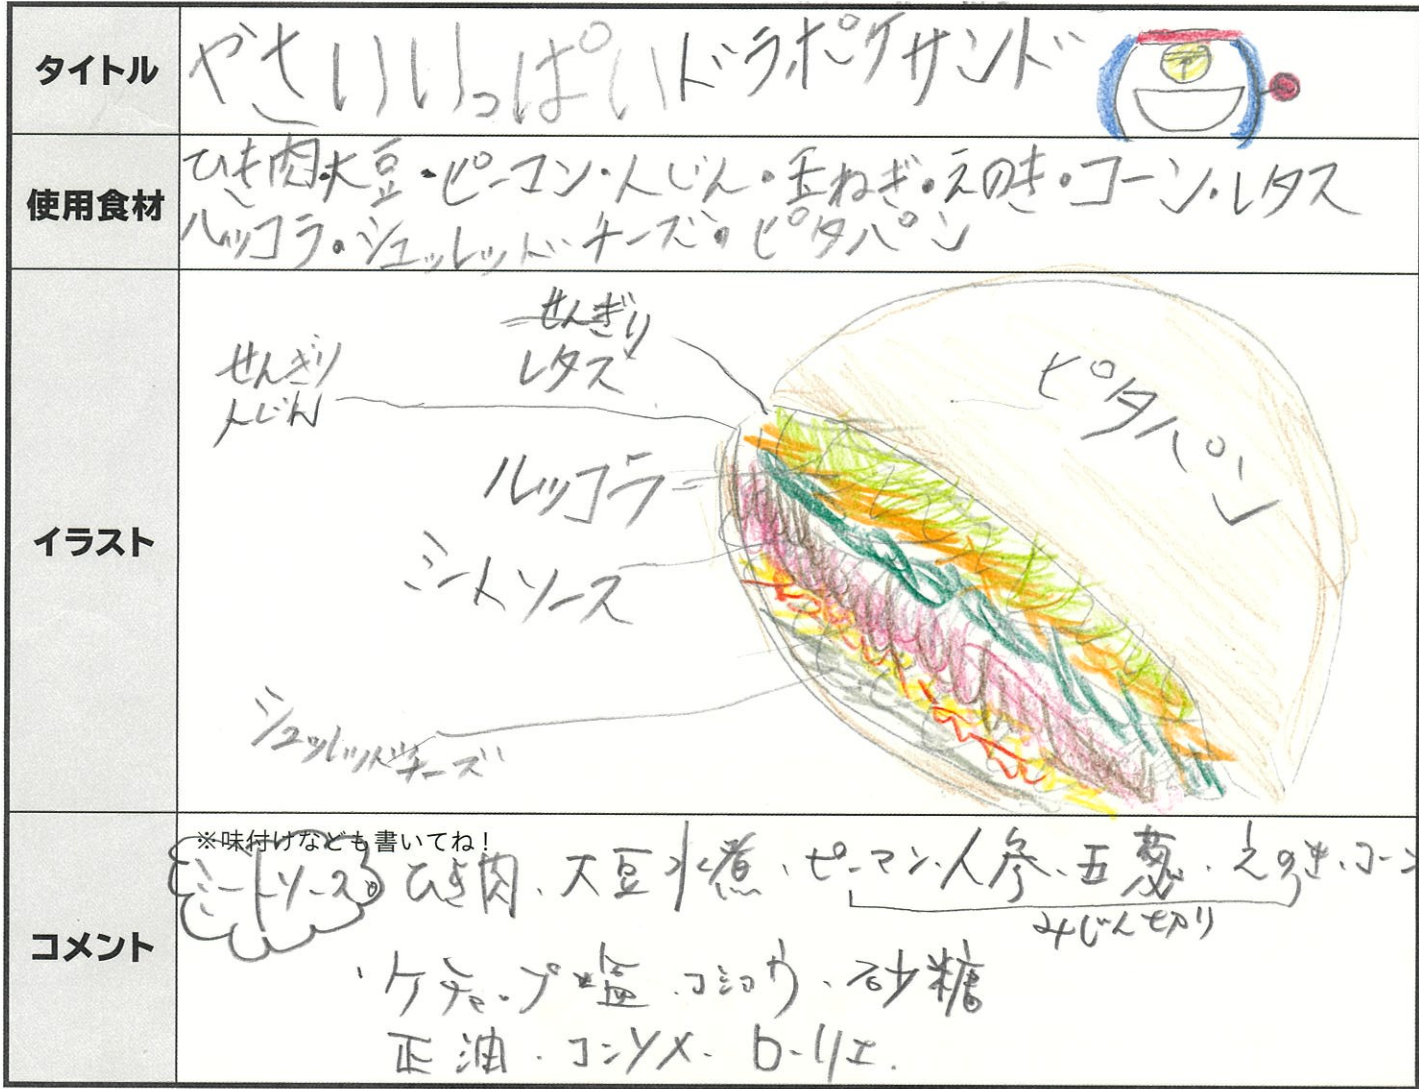 タイトル
やさいいっぱいドラポケサンド
使用食材
ひき肉・大豆・ピーマン・人じん・玉ねぎ・えのき・コーン・レタス
ルッコラ・シュッレッドチーズ・ピタパン
イラスト
せんぎり
レタス
せんぎり
人じん
ピタパン
ルッコラ
ミートソース
シュッレッドチーズ
コメント
※味付けなども書いてね！
ミートソース。ひき肉、大豆水煮、ピーマン、人参、玉葱、えのき、コーン
みじん切り
ケチャップ塩、コショウ、砂糖
正油、コンソメ、ローリエ、